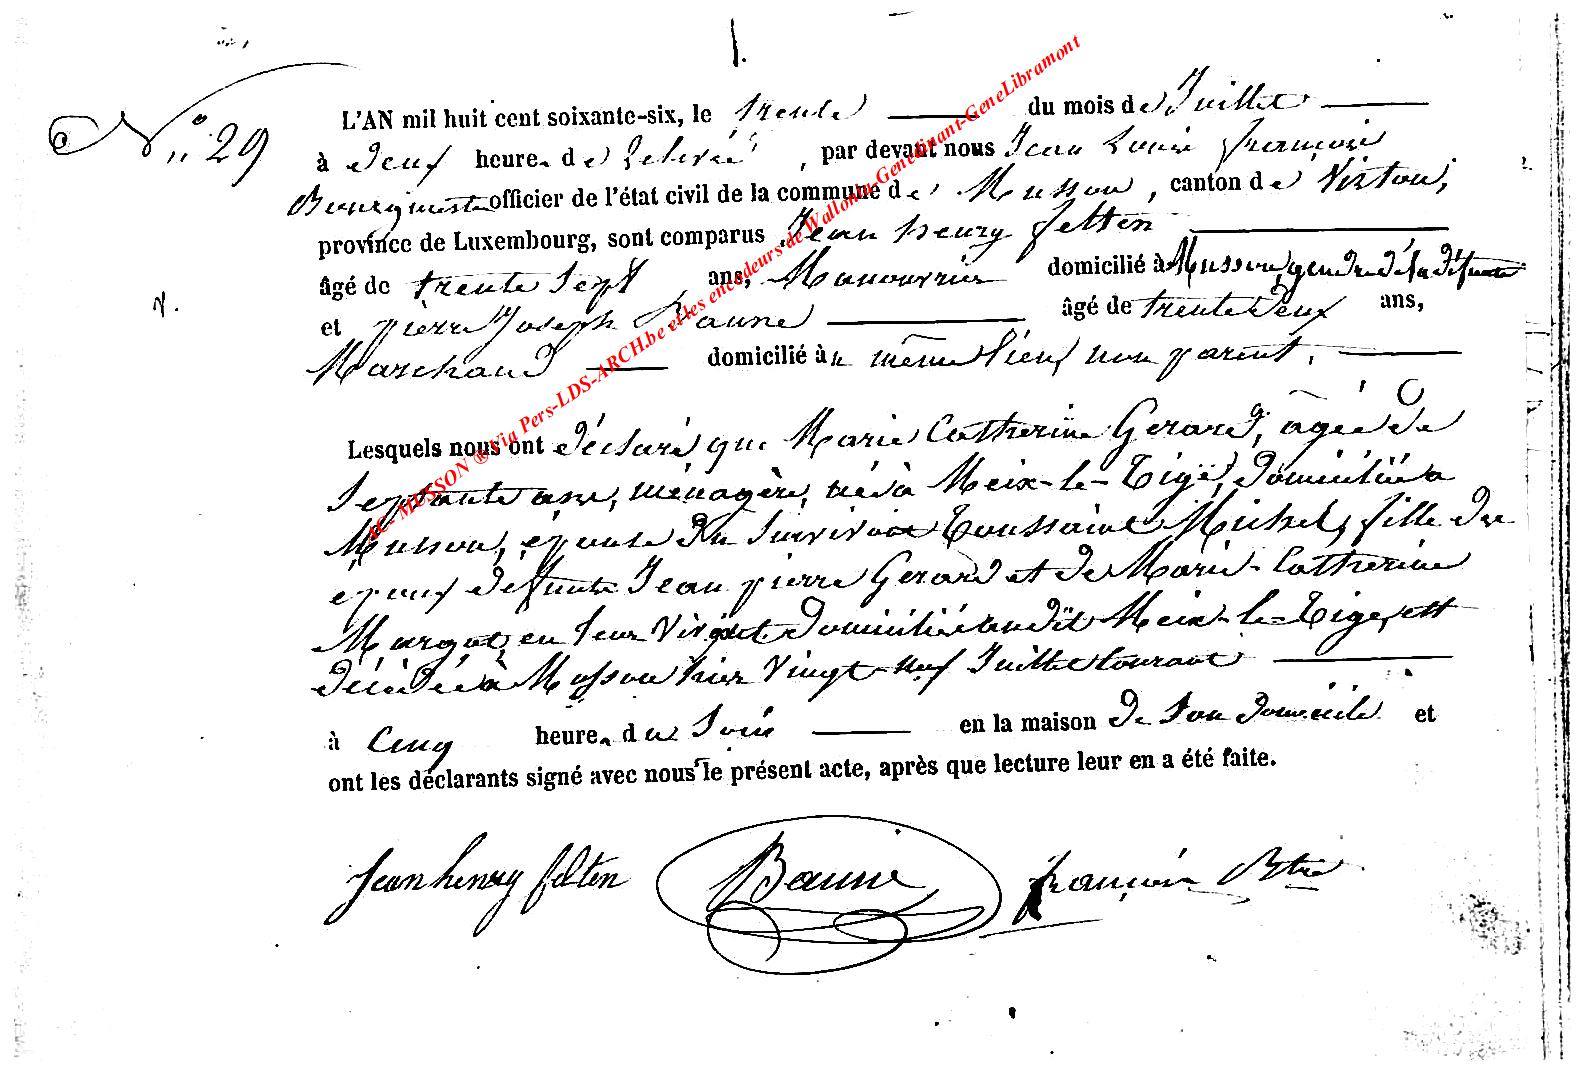 N.° 29
L'AN mil huit cent soixante-six, le trente du mois de Juillet
à deux heures de relevée, par devant nous Jean Louis François
Bourgmestre officier de l'état civil de la commune de Musson, canton de Virton,
province de Luxembourg, sont comparus Jean henry felten
âgé de trente sept ans, Manouvrier domicilié à Musson, gendre de la défunte
et pierre Joseph Baune âgé de trente deux ans,
Marchand domicilié à u même lieu, non parent,
Lesquels nous ont déclaré que Marie Catherine Gerard, agée de
Septante ans, ménagère, née à Meix-le-Tige, domiciliée a
Musson, épouse du survivant Toussaint Michel, fille des
epoux défunts Jean pierre Gerard et de Marie-Catherine
Margot, en leur vivant domiciliés audit Meix-le-Tige, est
décédée à Musson hier vingt-neuf Juillet courant
à Cinq heures du soir en la maison de son domicile et
ont les déclarants signé avec nous le présent acte, après que lecture leur en a été faite.
Jean henry felten Baune françois Btre
AC- MUSSON ® Via Pers-LDS-ARCH.be et les encodeurs de Wallonia-Genedinant-GeneLibramont